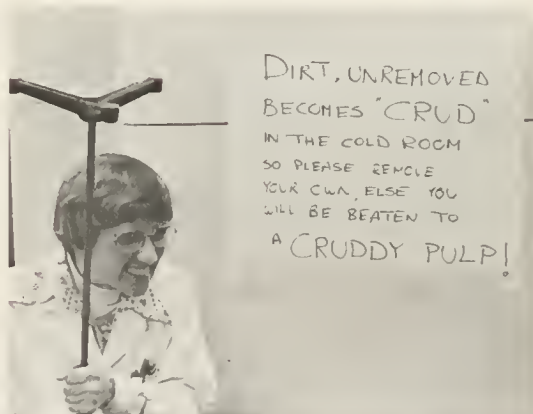 DIRT, UNREMOVED
BECOMES "CRUD"
IN THE COLD ROOM
SO PLEASE REMOVE
YOUR OWN, ELSE YOU
WILL BE BEATEN TO
A CRUDDY PULP!